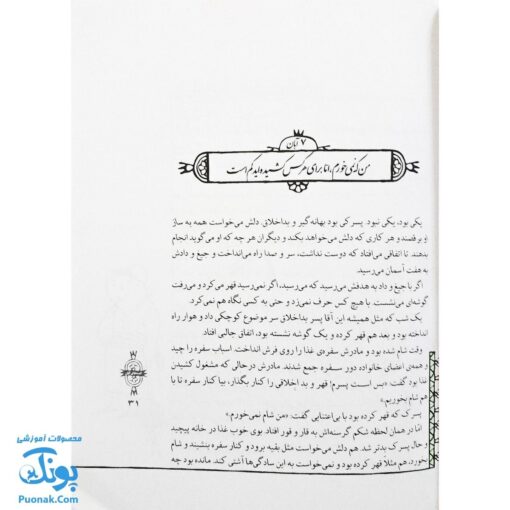 ۷ آبان
من که نمی‌خورم، اما برای هر کس کشیده‌اید کم است
یکی بود، یکی نبود. پسرکی بود بهانه‌گیر و بداخلاق. دلش می‌خواست همه به ساز
او برقصند و هر کاری که دلش می‌خواهد بکند و دیگران هر چه که او می‌گوید انجام
بدهند. تا اتفاقی می‌افتاد که دوست نداشت، سر و صدا راه می‌انداخت و جیغ و دادش
به هفت آسمان می‌رسید.
اگر با جیغ و داد به هدفش می‌رسید که می‌رسید، اگر نمی‌رسید قهر می‌کرد و می‌رفت
گوشه‌ای می‌نشست. با هیچ کس حرف نمی‌زد و حتی به کسی نگاه هم نمی‌کرد.
یک شب که مثل همیشه این آقا پسر بداخلاق سر موضوع کوچکی داد و هوار راه
انداخته بود و بعد هم قهر کرده و یک گوشه نشسته بود، اتفاق جالبی افتاد.
وقت شام شده بود و مادرش سفره‌ی غذا را روی فرش انداخت. اسباب سفره را چید
و همه‌ی اعضای خانواده دور سفره جمع شدند. مادرش درحالی که مشغول کشیدن
غذا بود گفت: «بس است پسرم! قهر و بد اخلاقی را کنار بگذار، بیا کنار سفره تا با
هم شام بخوریم.»
پسرک که قهر کرده بود با بی‌اعتنایی گفت: «من شام نمی‌خورم.»
امّا در همان لحظه شکم گرسنه‌اش به قار و قور افتاد. بوی خوب غذا در خانه پیچید
و حال پسرک بدتر شد. هم دلش می‌خواست مثل بقیه برود و کنار سفره بنشیند و شام
بخورد، هم مثلاً قهر کرده بود و نمی‌خواست به این سادگی‌ها آشتی کند. مانده بود چه
۳۱
محصولات آموزشی
پونک
Puonak.Com